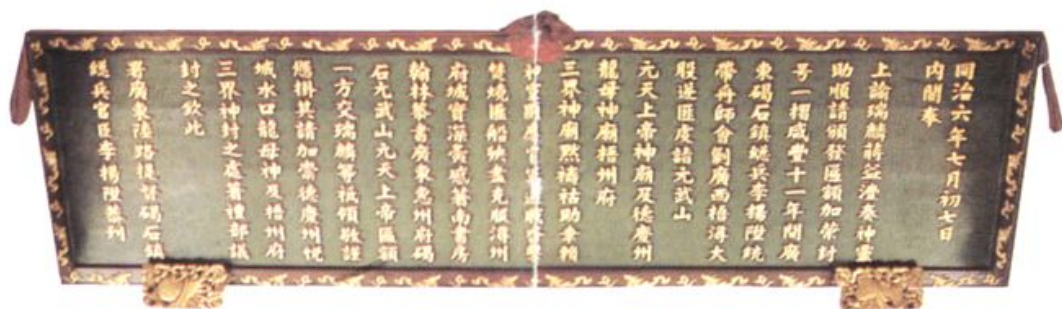 同治六年七月初七日
內閣奉
上諭瑞麟蔣益澧奏神靈
助順請頒發匾額加崇封
号一摺咸豐十一年間廣
東碣石鎮總兵李揚陞統
帶舟師會勦廣西梧潯大
股逆匪虔詣元武山
元天上帝神廟及德慶州
龍母神廟梧州府
三界神廟默禱祐助幸賴
神
焚燒匪船殆盡克服潯州
府城實深寅感著南書房
翰林恭書廣東惠州府碣
石元武山元天上帝匾額
一方交瑞麟等祗領敬謹
懸掛其請加崇德慶州悅
城水口龍母神及梧州府
三界神封之處著禮部議
封之欽此
署廣東陸路提督碣石鎮
總兵官臣李揚陞恭刊